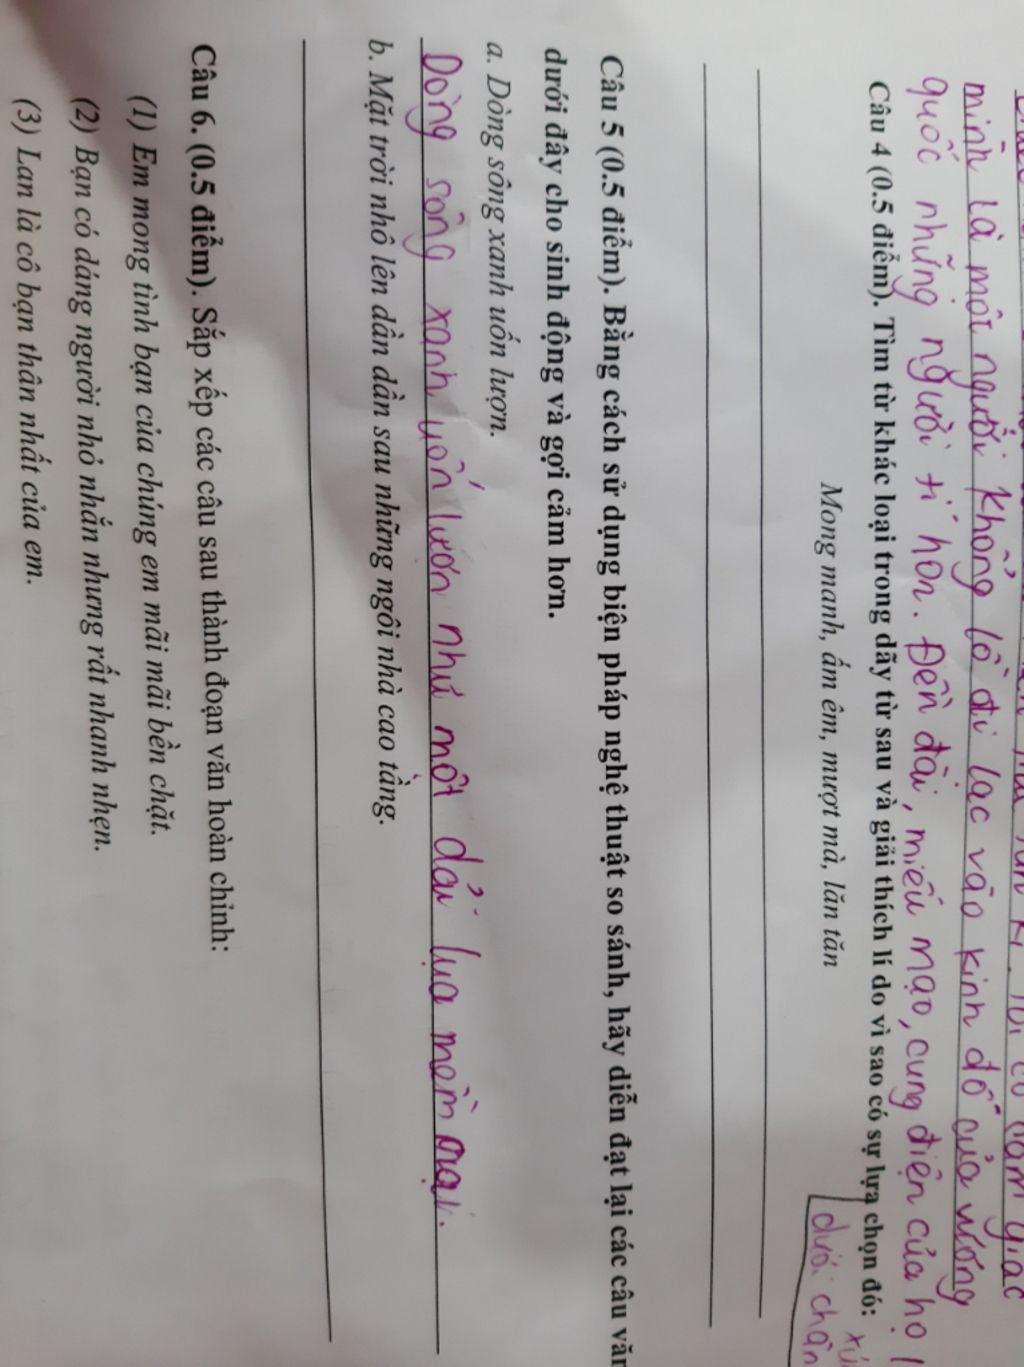 mình là một người khổng lồ đi lạc vào kinh đô của vương
quốc những người tí hon. Đền đài, miếu mạo, cung điện của họ
Câu 4 (0.5 điểm). Tìm từ khác loại trong dãy từ sau và giải thích lí do vì sao có sự lựa chọn đó:
dưới chân
Mong manh, ấm êm, mượt mà, lăn tăn
Câu 5 (0.5 điểm). Bằng cách sử dụng biện pháp nghệ thuật so sánh, hãy diễn đạt lại các câu văn
dưới đây cho sinh động và gợi cảm hơn.
a. Dòng sông xanh uốn lượn.
Dòng sông xanh uốn lượn như một dải lụa mềm mại.
b. Mặt trời nhô lên dần dần sau những ngôi nhà cao tầng.
Câu 6. (0.5 điểm). Sắp xếp các câu sau thành đoạn văn hoàn chỉnh:
(1) Em mong tình bạn của chúng em mãi mãi bền chặt.
(2) Bạn có dáng người nhỏ nhắn nhưng rất nhanh nhẹn.
(3) Lan là cô bạn thân nhất của em.